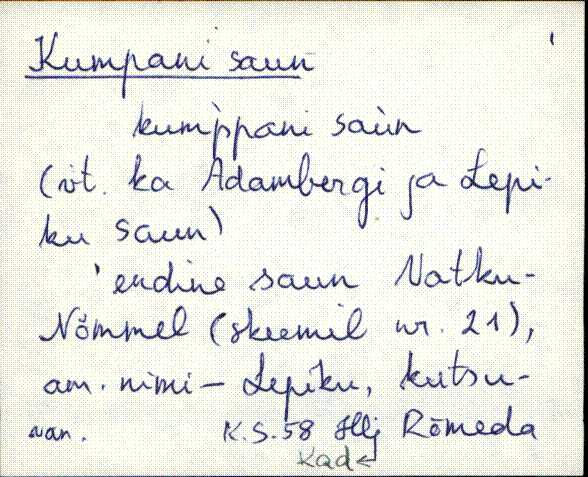 Kumpani saun
kum̀ppani saùn
(vt. ka Adambergi ja Lepi-
ku saun)
'endine saun Natku-
Nõmmel (skeemil nr. 21),
am. nimi – Lepiku, kutsu-
nan. K.S.58 Hlj Rõmeda
Kad ←